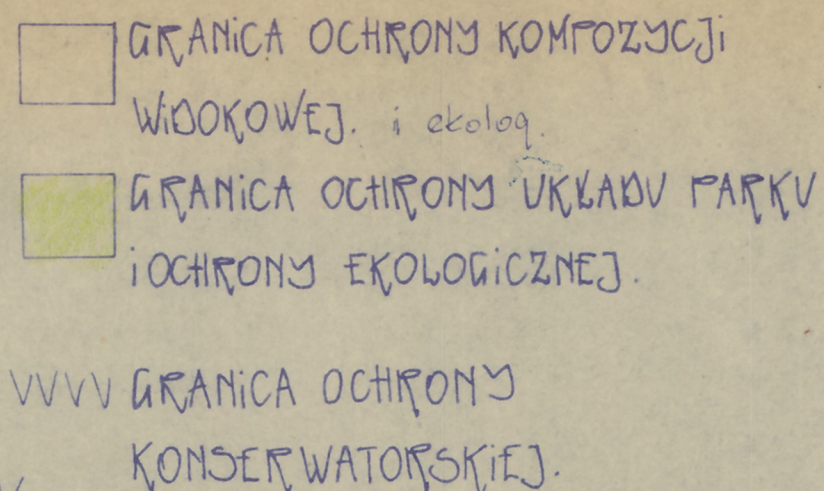 GRANiCA OCHRONY KOMPOZYCJi
WiDOKOWEJ. i ekolog.
GRANiCA OCHRONY UKŁADU PARKU
i OCHRONY EKOLOGiCZNEJ.
VVVV GRANiCA OCHRONY
KONSERWATORSKiEJ.